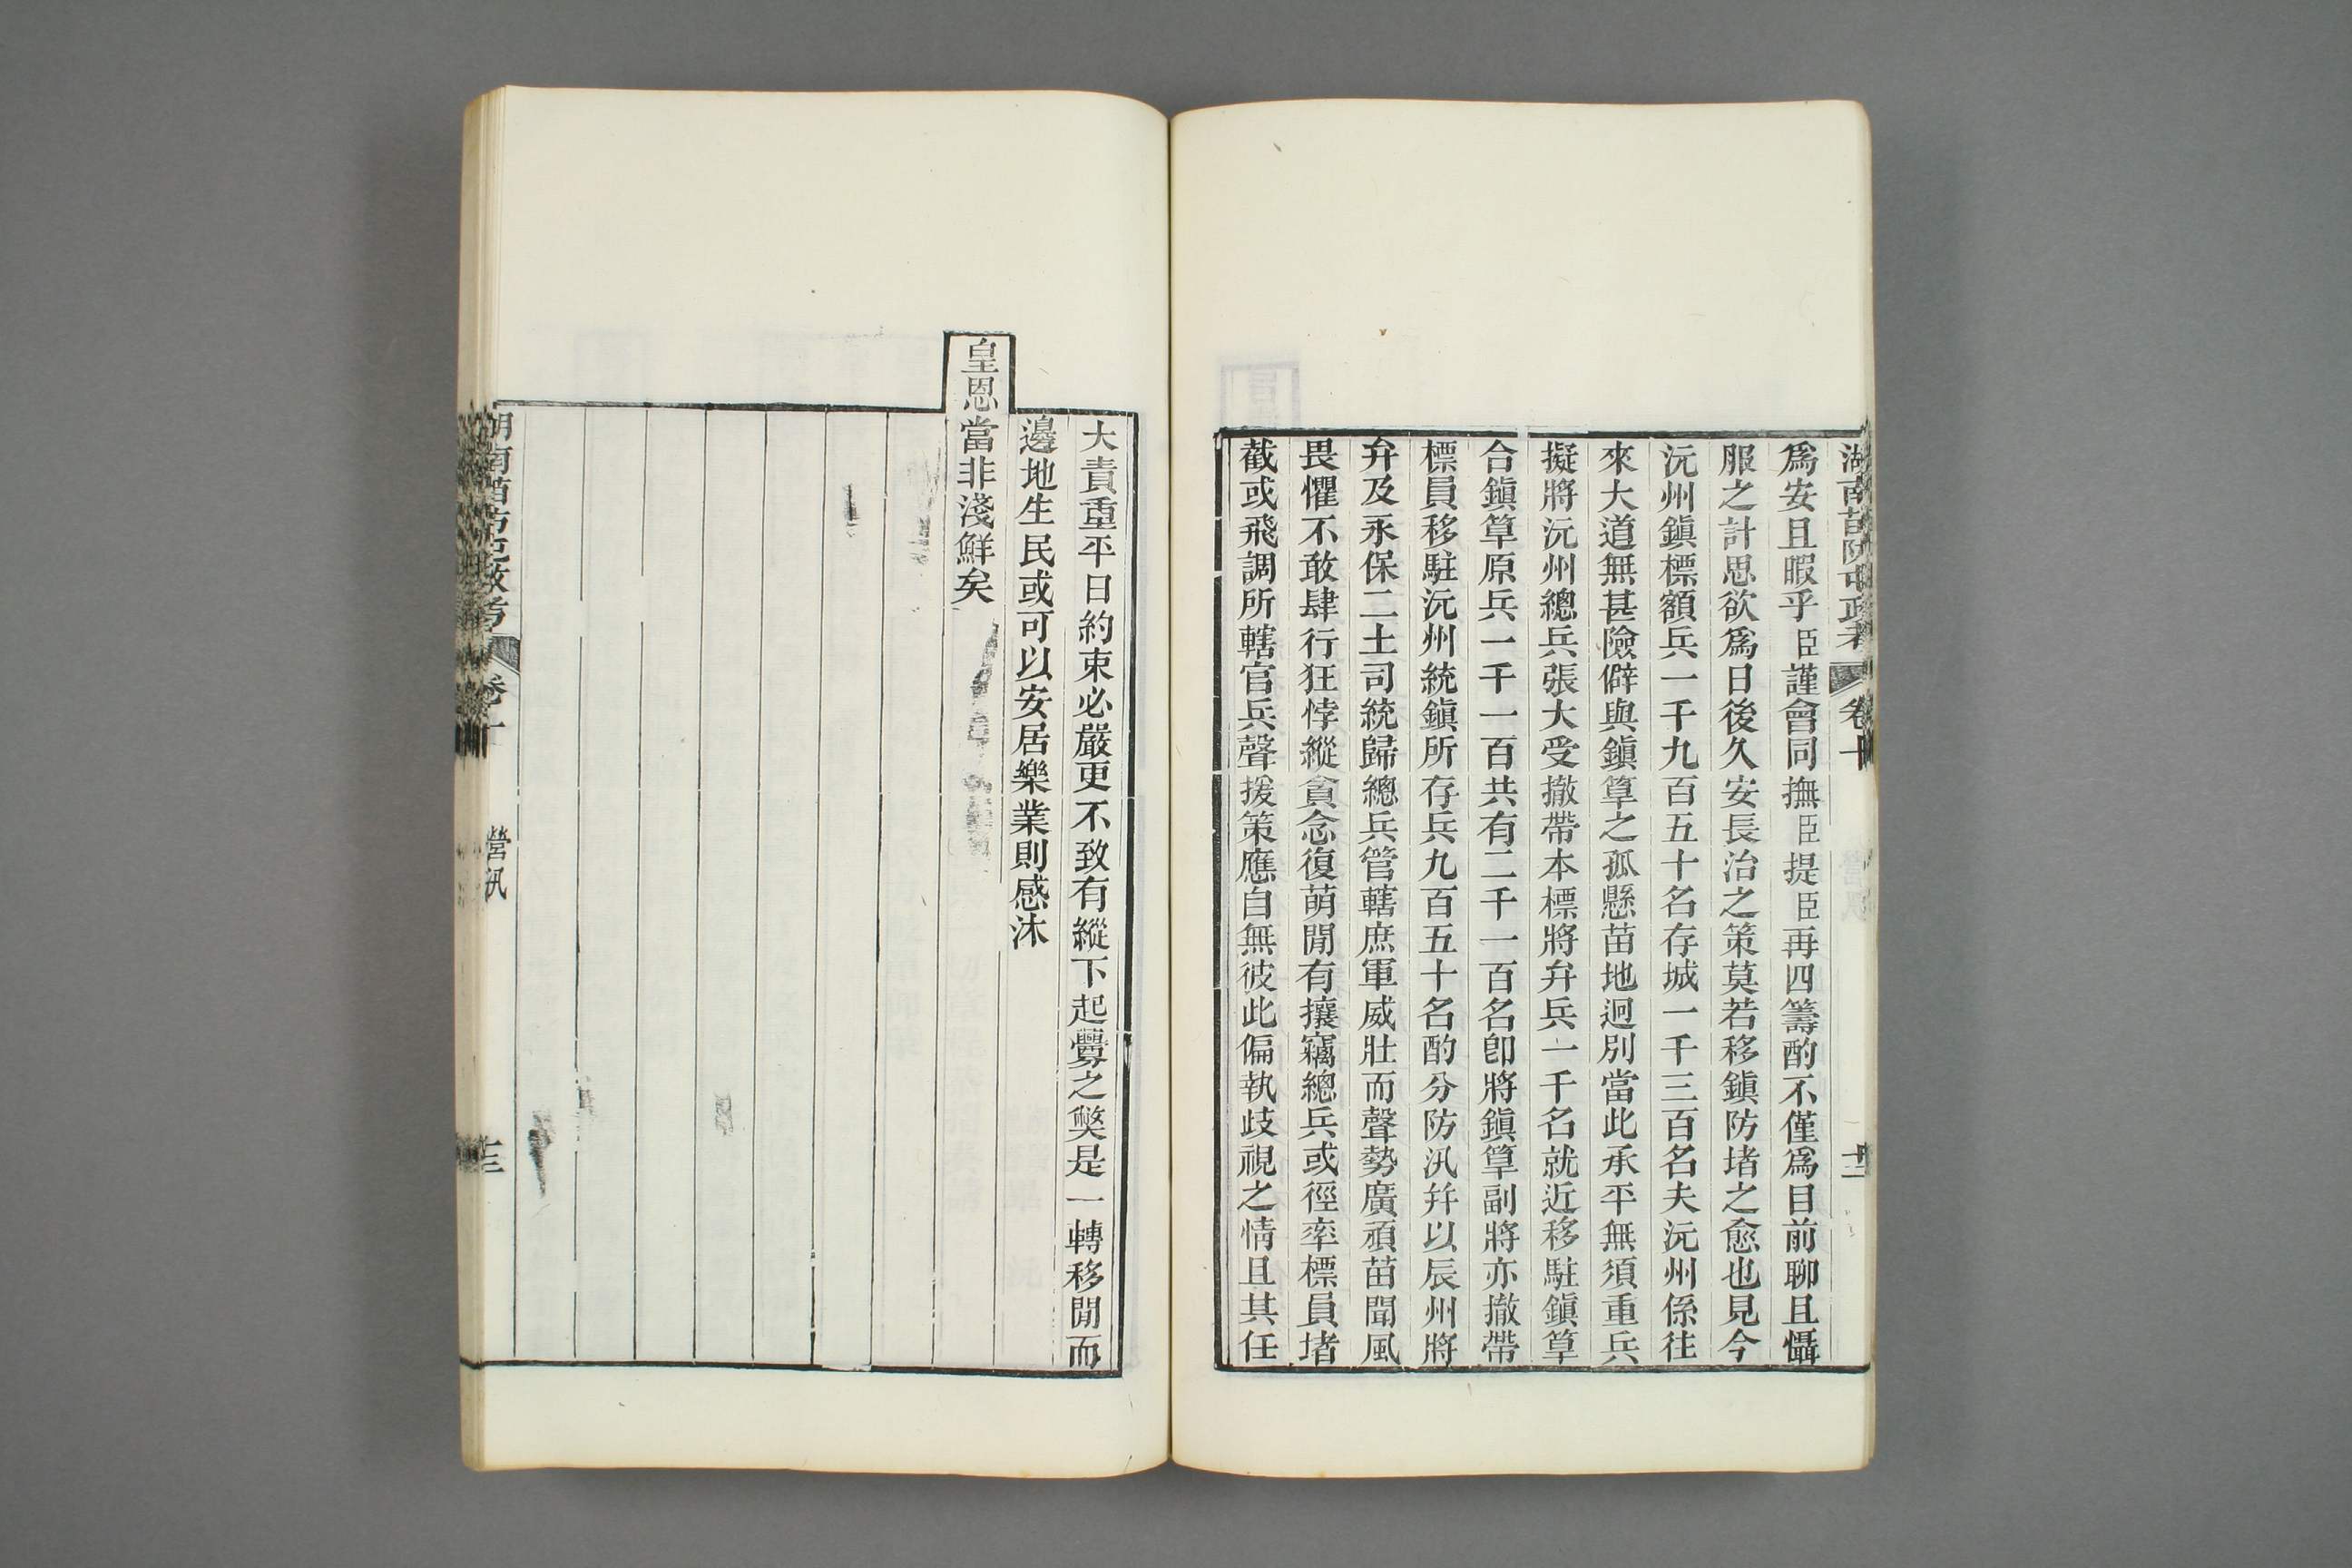 湖南苗防屯政考 卷十 十二
爲安且暇乎臣謹會同撫臣提臣再四籌酌不僅爲目前聊且懾
服之計思欲爲日後久安長治之策莫若移鎭防堵之愈也見今
沅州鎭標額兵一千九百五十名存城一千三百名夫沅州係往
來大道無甚險僻與鎭筸之孤懸苗地迥別當此承平無須重兵
擬將沅州總兵張大受撤帶本標將弁兵一千名就近移駐鎭筸
合鎭筸原兵一千一百共有二千一百名卽將鎭筸副將亦撤帶
標員移駐沅州統鎭所存兵九百五十名酌分防汛幷以辰州將
弁及永保二土司統歸總兵管轄庶軍威壯而聲勢廣頑苗聞風
畏懼不敢肆行狂悖縱貪念復萌閒有攘竊總兵或徑率標員堵
截或飛調所轄官兵聲援策應自無彼此偏執歧視之情且其任
大責重平日約束必嚴更不致有縱下起釁之獘是一轉移閒而
邊地生民或可以安居樂業則感沐
皇恩當非淺鮮矣
湖南苗防屯政考 卷十 營汛 十三